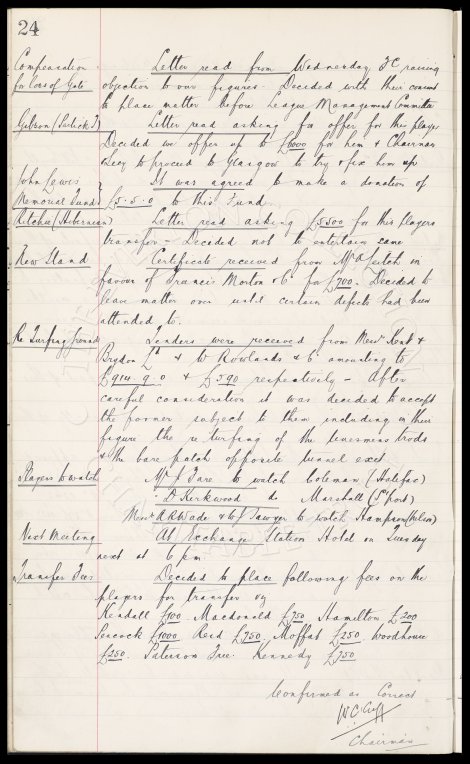 24
Compensation Letter read from Wednesday F.C. raising
for loss of Gate objection to our figures. Decided with their consent
to place matter before League Management Committee
Gibson (Partick T) Letter read asking for offer for this player
Decided we offer up to £1000 for him & Chairman
& Secy to proceed to Glasgow to try & fix him up
John Lewis It was agreed to make a donation of
Memorial Fund £5.5.0 to this Fund.
Ritchie (Hibernian) Letter read asking £5500 for this players
transfer - Decided not to entertain same
New Stand Certificate received from Mr Leitch in
favour of Francis Morton & Co for £700. Decided to
leave matter over until certain defects had been
attended to.
Re Turfing ground Tenders were received from Messrs Kent &
Brydon Ld & W Rowlands & Co amounting to
£914.9.0 & £590 respectively - After
careful consideration it was decided to accept
the former subject to them including in their
figure the re turfing of the linesmens trods
& the bare patch opposite tunnel exit.
Players to watch Mr J Fare to watch Coleman (Halifax)
" D Kirkwood do Marshall (St'port)
Messrs A R Wade & W J Sawyer to watch Hampson (Nelson)
Next Meeting At Exchange Station Hotel on Tuesday
next at 6 pm.
Transfer Fees Decided to place following fees on the
players for transfer viz
Kendall £100. Macdonald £750 Hamilton £200
Peacock £1000 Reid £750. Moffat £250. Woodhouse
£250. Paterson Free. Kennedy £750
Confirmed as Correct
W.C. Cuff
Chairman